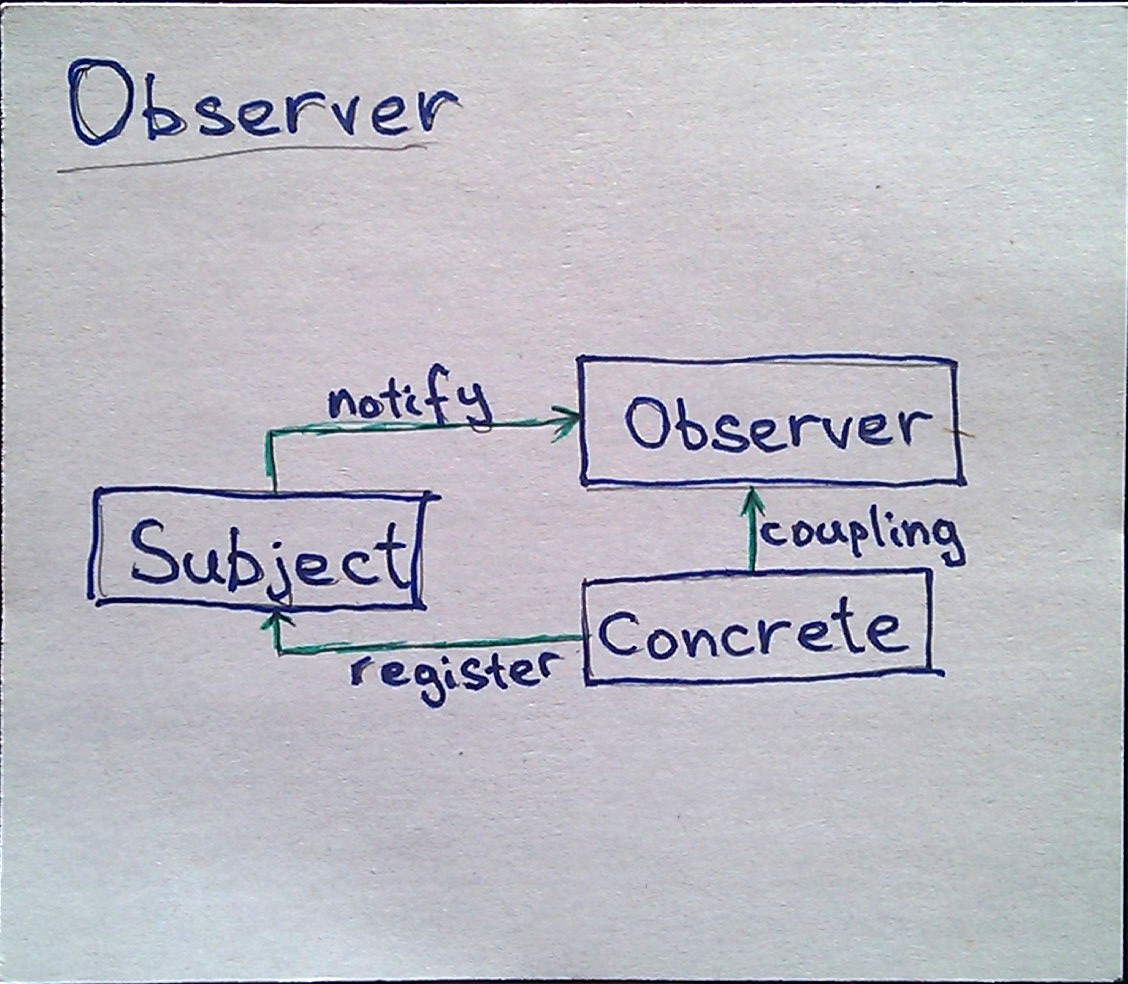 Observer
notify
Observer
Subject
coupling
Concrete
register